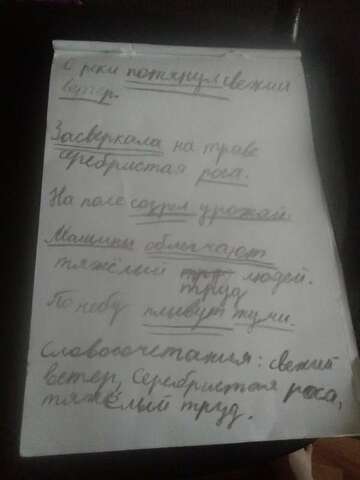 С реки потянул свежий
ветер.
Засверкала на траве
серебристая роса.
На поле созрел урожай.
Машины облегчают
тяжёлый труд людей.
По небу плывут тучи.
Словосочетания: свежий
ветер, серебристая роса,
тяжёлый труд.